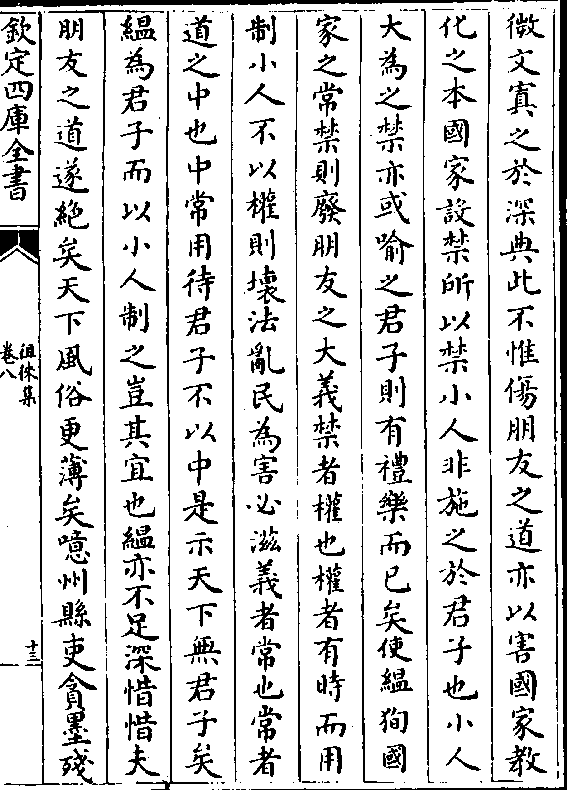 微文寘之於深典此不惟傷朋友之道亦以害國家教
化之本國家設禁所以禁小人非施之於君子也小人
大為之禁亦或喻之君子則有禮樂而已矣使縕狥國
家之常禁則廢朋友之大義禁者權也權者有時而用
制小人不以權則壞法亂民為害必滋義者常也常者
道之中也中常用待君子不以中是示天下無君子矣
縕為君子而以小人制之豈其宜也縕亦不足深惜惜夫
朋友之道遂絕矣天下風俗更薄矣噫州縣吏貪墨殘
欽定四庫全書
徂徕集
卷八
十三